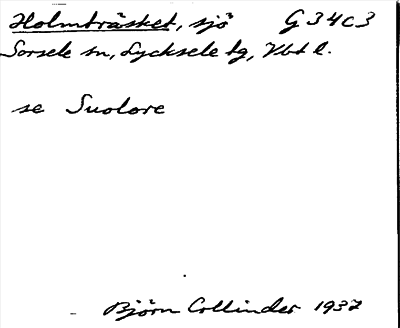 Holmträsket, sjö G 34 c 3
Sorsele sn, Lycksele tg, Vbt l.
se Suolore
Björn Collinder 1937